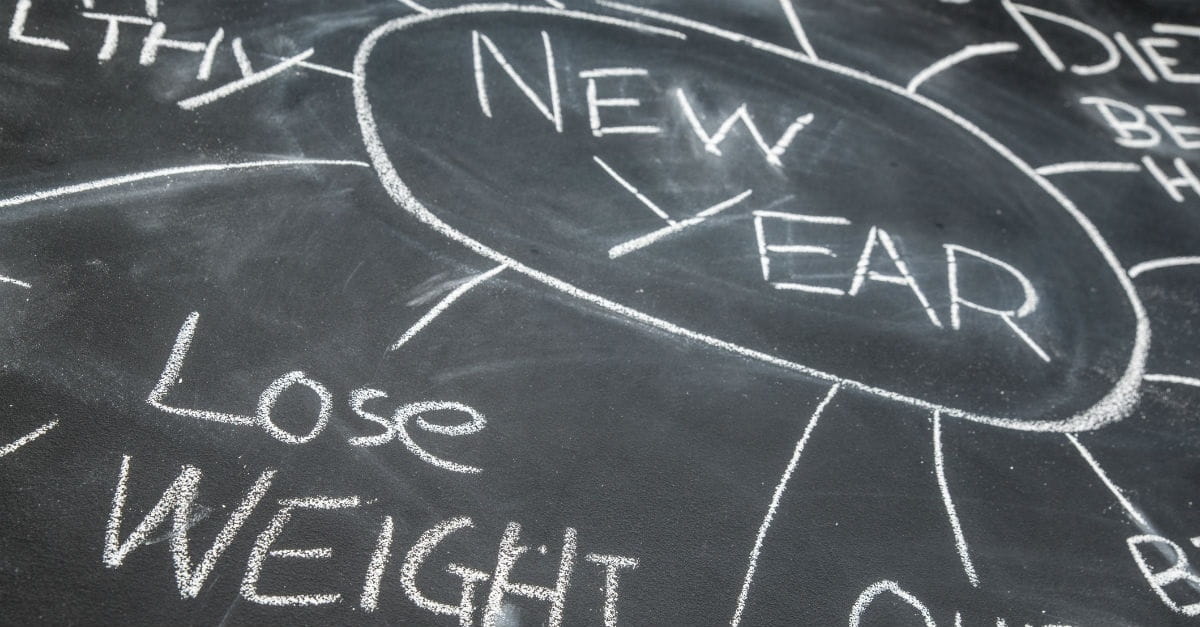 LTHY
NEW
YEAR
DIE
BE
H
Lose
WEIGHT